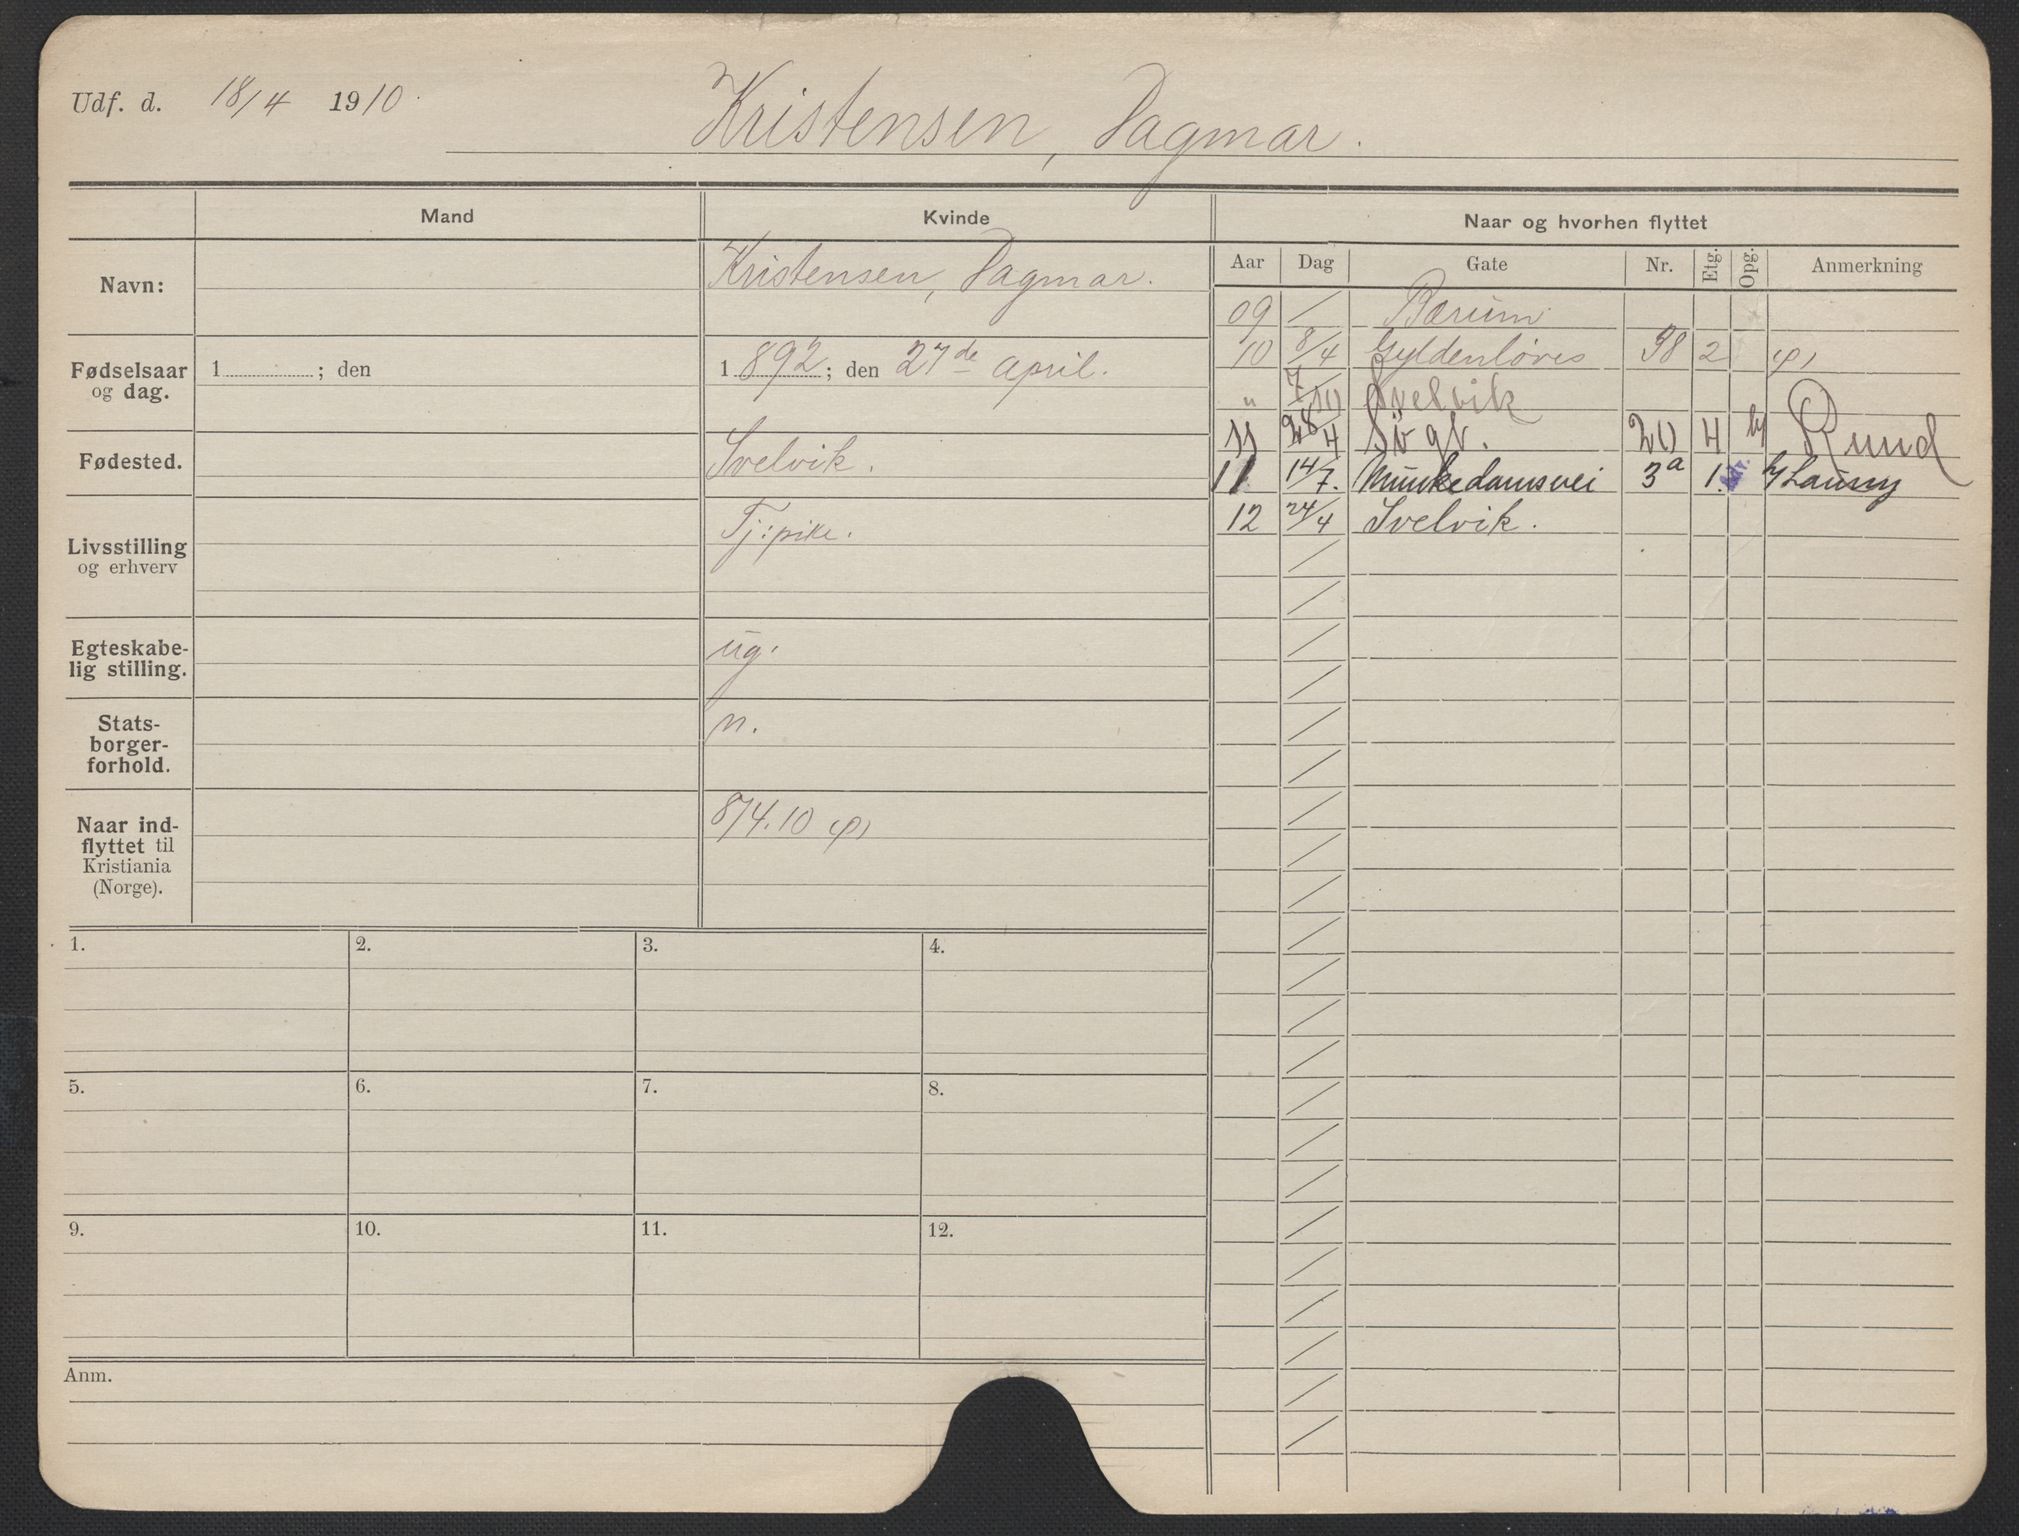 Udf. d. 18/4 1910.
Kristensen, Dagmar.
Mand
Kvinde
Naar og hvorhen flyttet
Aar Dag Gate Nr. Etg. Opg. Anmerkning
Navn:
Kristensen, Dagmar.
Fødselsaar og dag.
1 ; den
1892; den 27de april.
Fødested.
Svelvik.
Livsstilling og erhverv
Tj:pike.
Egteskabe-
lig stilling.
ug.
Stats-
borger-
forhold.
n.
Naar ind-
flyttet til
Kristiania
(Norge).
8/4.10
09 / Bærum
10 8/4 Gyldenløves 38 2
" 7/10 Svelvik
11 28/4 20 4 Rund
11 14/7. Munkedamsvei 3a 1.
12 24/4 Svelvik.
1. 2. 3. 4.
5. 6. 7. 8.
9. 10. 11. 12.
Anm.